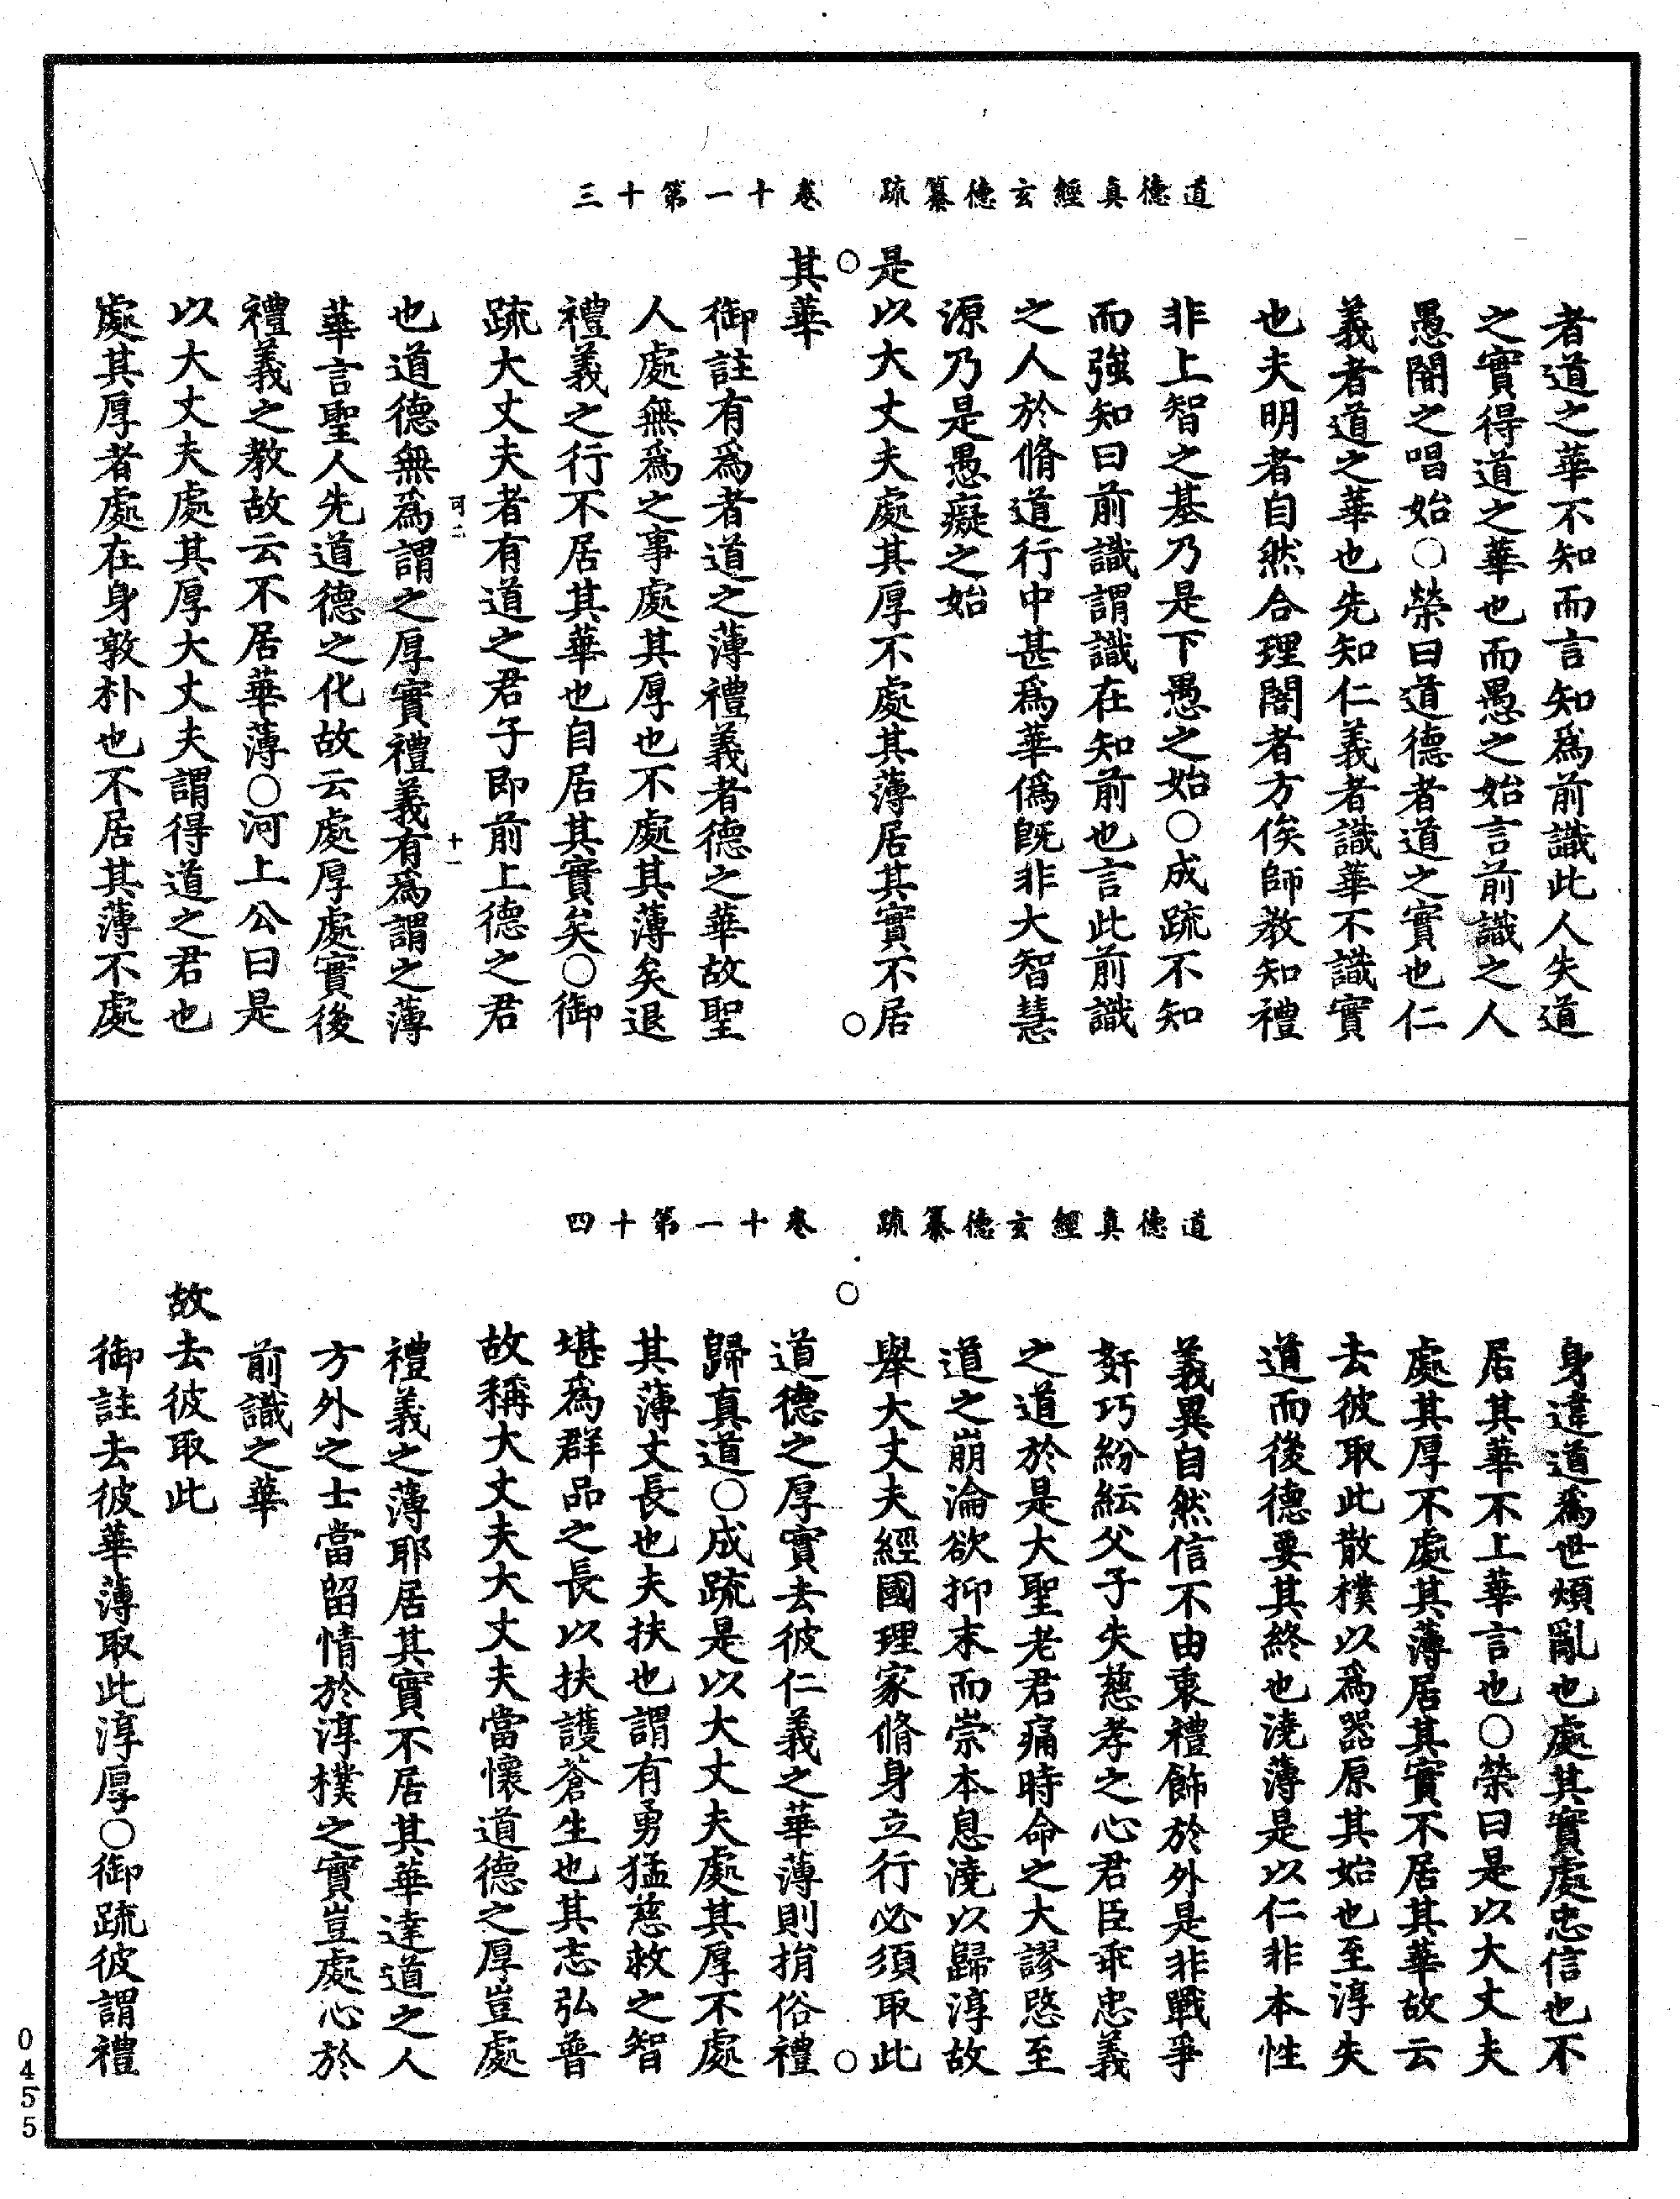 道德真經玄德纂疏　卷十一第十三
者道之華不知而言知爲前識此人失道
之實得道之華也而愚之始言前識之人
愚闇之唱始○榮曰道德者道之實也仁
義者道之華也先知仁義者識華不識實
也夫明者自然合理闇者方俟師教知禮
非上智之基乃是下愚之始○成疏不知
而強知曰前識謂識在知前也言此前識
之人於脩道行中甚爲華僞旣非大智慧
源乃是愚癡之始
是以大丈夫處其厚不處其薄居其實不居
其華
御註有爲者道之薄禮義者德之華故聖
人處無爲之事處其厚也不處其薄矣退
禮義之行不居其華也自居其實矣○御
疏大丈夫者有道之君子即前上德之君
可二　十一
也道德無爲謂之厚實禮義有爲謂之薄
華言聖人先道德之化故云處厚處實後
禮義之教故云不居華薄○河上公曰是
以大丈夫處其厚大丈夫謂得道之君也
處其厚者處在身敦朴也不居其薄不處
道德真經玄德纂疏　卷十一第十四
身違道爲世煩亂也處其實處忠信也不
居其華不上華言也○榮曰是以大丈夫
處其厚不處其薄居其實不居其華故云
去彼取此散樸以爲器原其始也至淳失
道而後德要其終也澆薄是以仁非本性
義異自然信不由衷禮飾於外是非戰爭
姧巧紛紜父子失慈孝之心君臣乖忠義
之道於是大聖老君痛時命之大謬愍至
道之崩淪欲抑末而崇本息澆以歸淳故
舉大丈夫經國理家脩身立行必須取此
道德之厚實去彼仁義之華薄則捐俗禮
歸真道○成疏是以大丈夫處其厚不處
其薄丈長也夫扶也謂有勇猛慈救之智
堪爲群品之長以扶護蒼生也其志弘普
故稱大丈夫大丈夫當懷道德之厚豈處
禮義之薄耶居其實不居其華達道之人
方外之士當留情於淳樸之實豈處心於
前識之華
故去彼取此
御註去彼華薄取此淳厚○御疏彼謂禮
0455